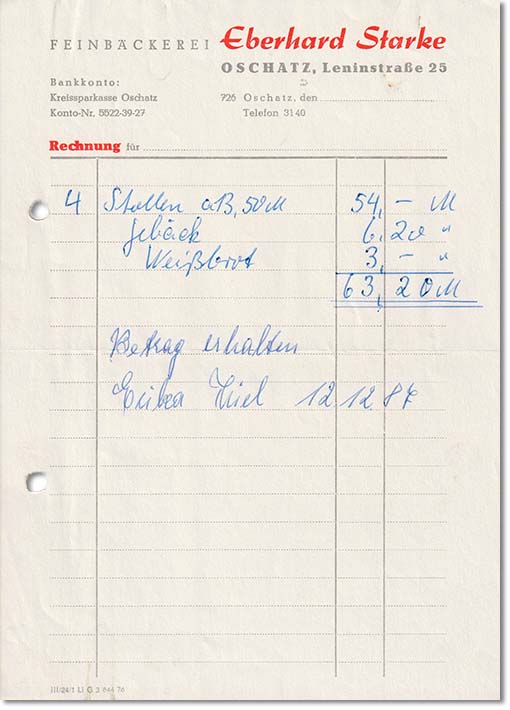 FEINBÄCKEREI Eberhard Starke
OSCHATZ, Leninstraße 25
Bankkonto:
Kreissparkasse Oschatz 726 Oschatz, den
Konto-Nr. 5522-39-27 Telefon 3140
Rechnung für
4 Stollen a 13,50 M 54,– M
Gebäck 6,20 "
Weißbrot 3,– "
63,20 M
Betrag erhalten
Erika 12.12.87
III/24/1 Li G 3 644 76